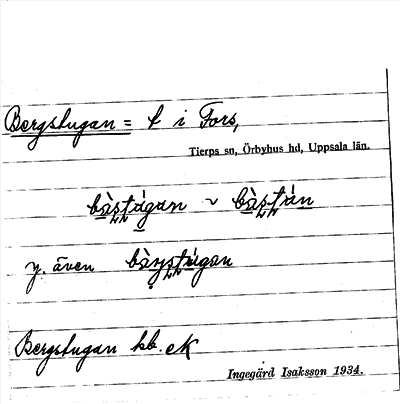 Bergstugan = t i Fors,
Tierps sn, Örbyhus hd, Uppsala län.
bàstúgan ~ bàstún
y. även bàrstúgan
Bergstugan hb. ek
Ingegärd Isaksson 1934.